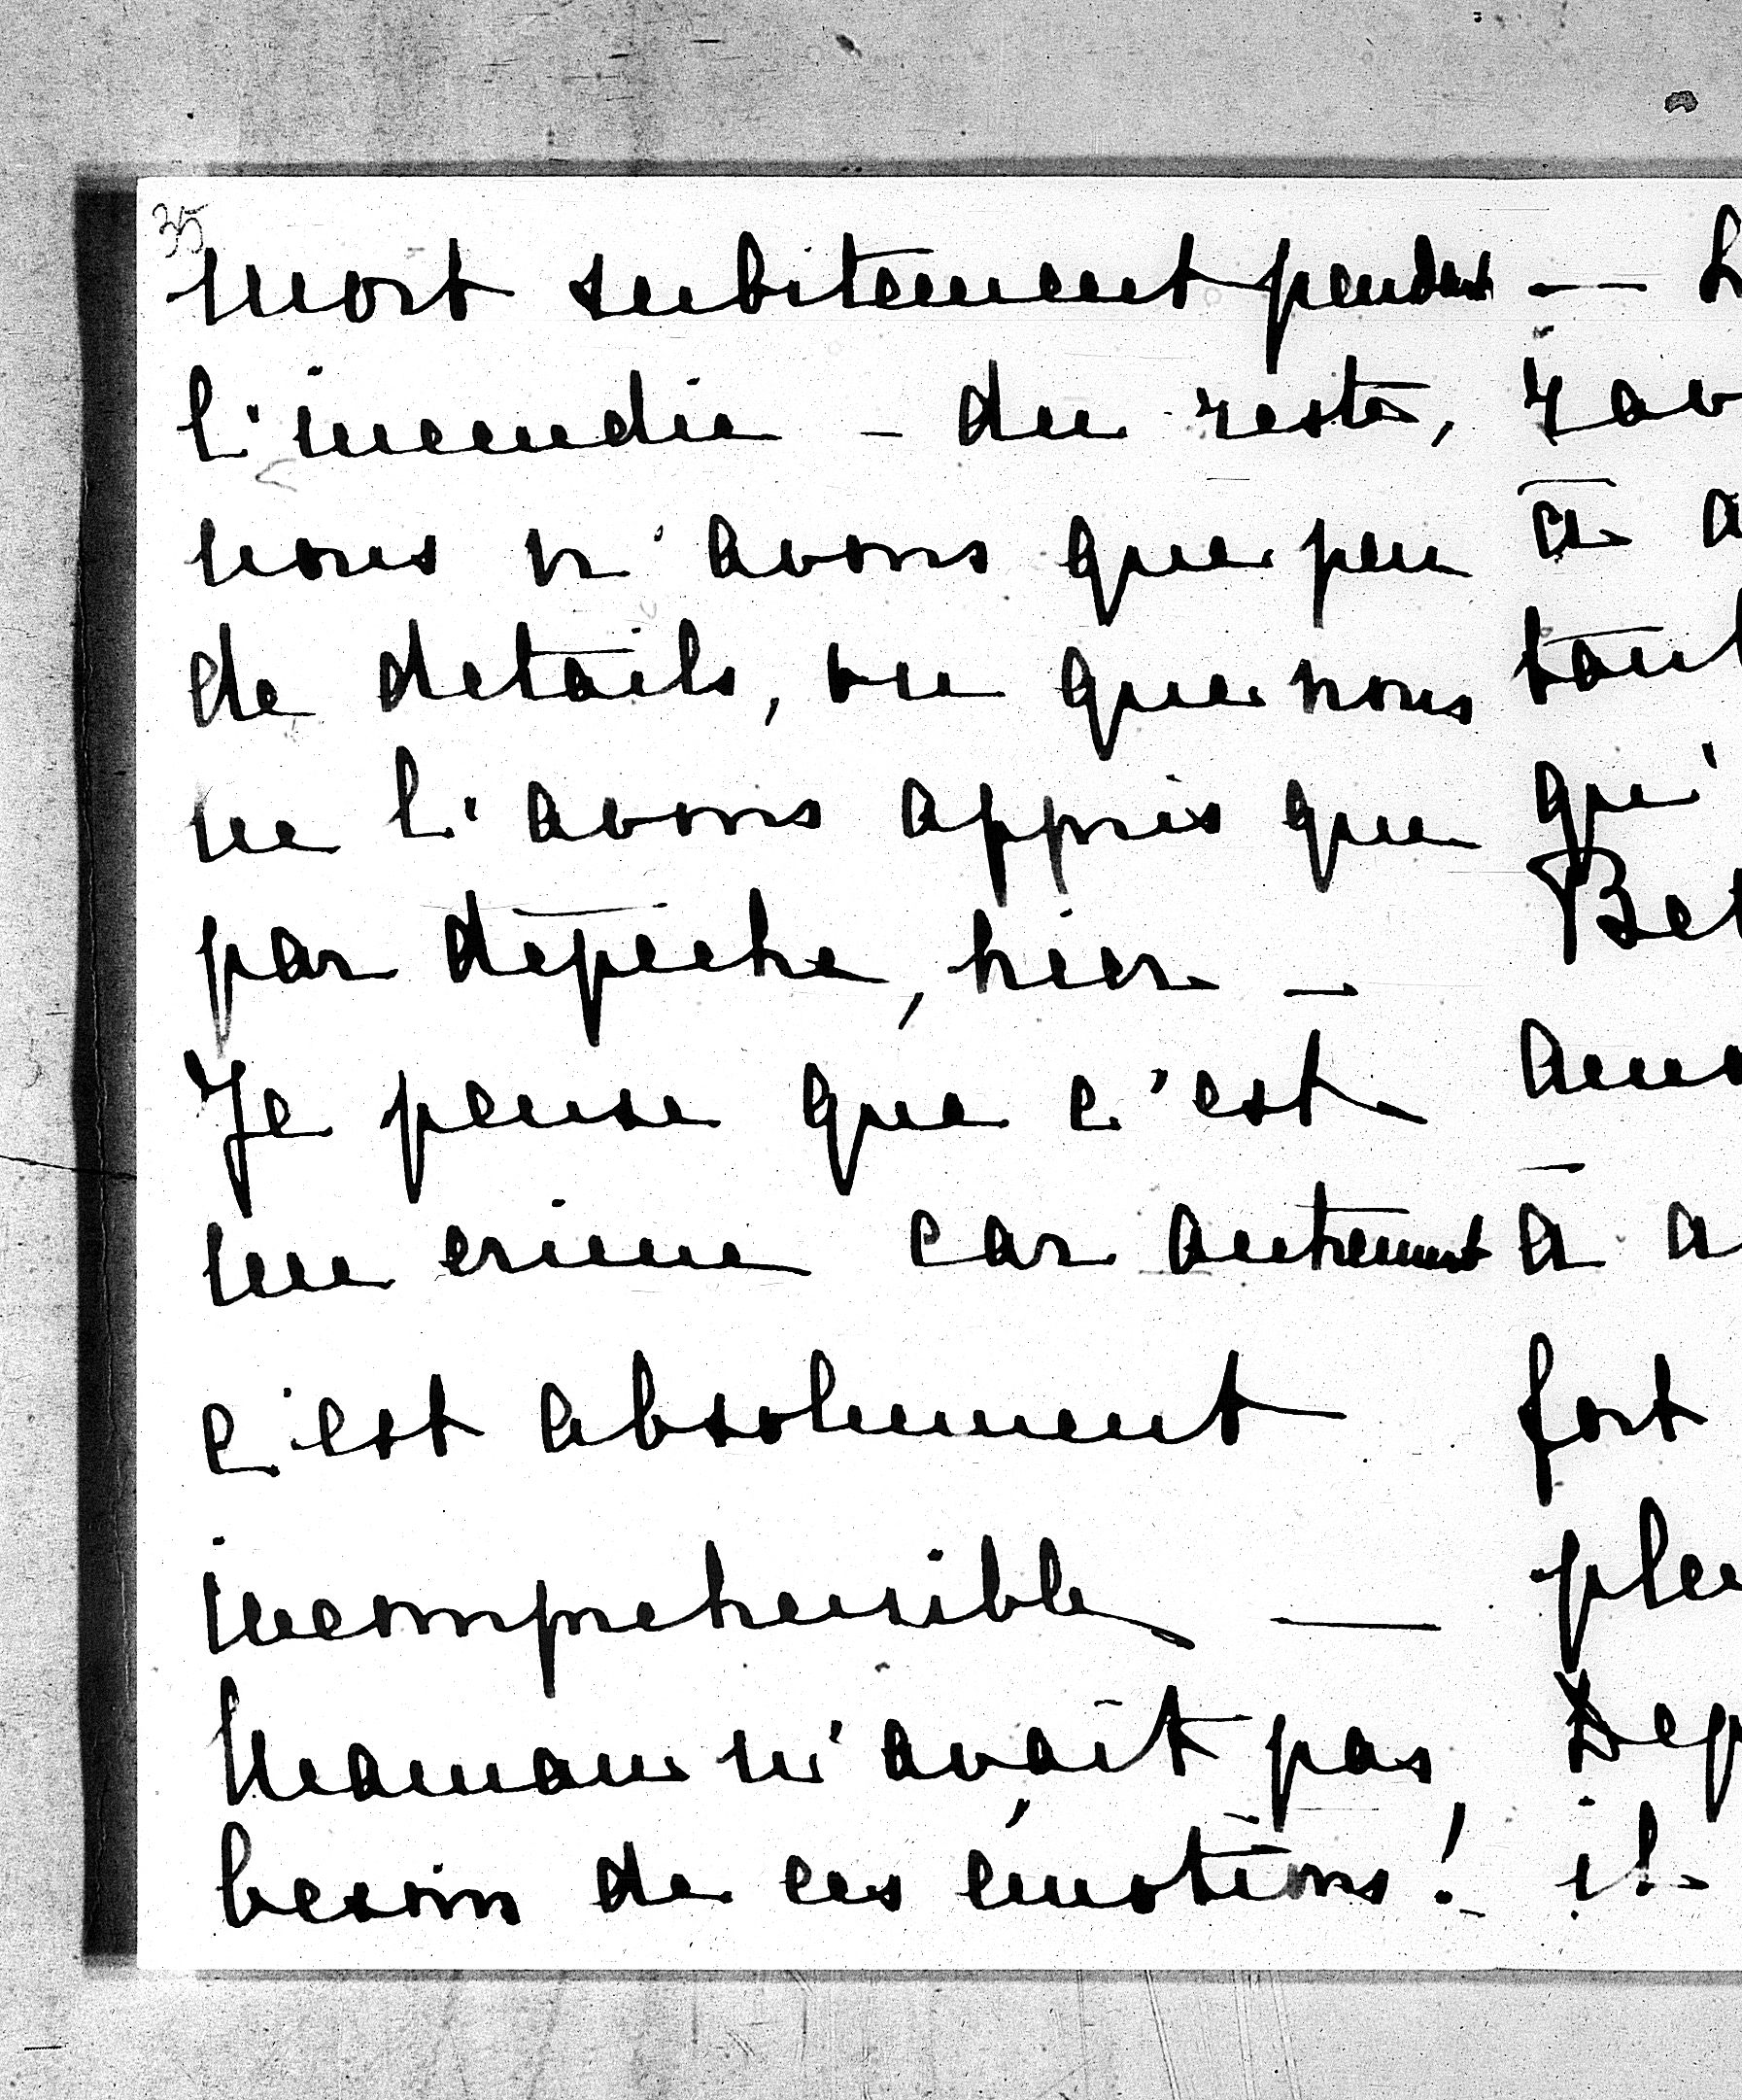 35
mort subitement pendant
l'incendie - du reste,
nous n'avons que peu
de details, vu que nous
ne l'avons appris que
par dépeche, hier -
Je pense que c'est
un crime car autrement
c'est absolument
incomprehensible —
Maman n'avait pas
besoin de ces émotions!
à
qu'
à
fort
il